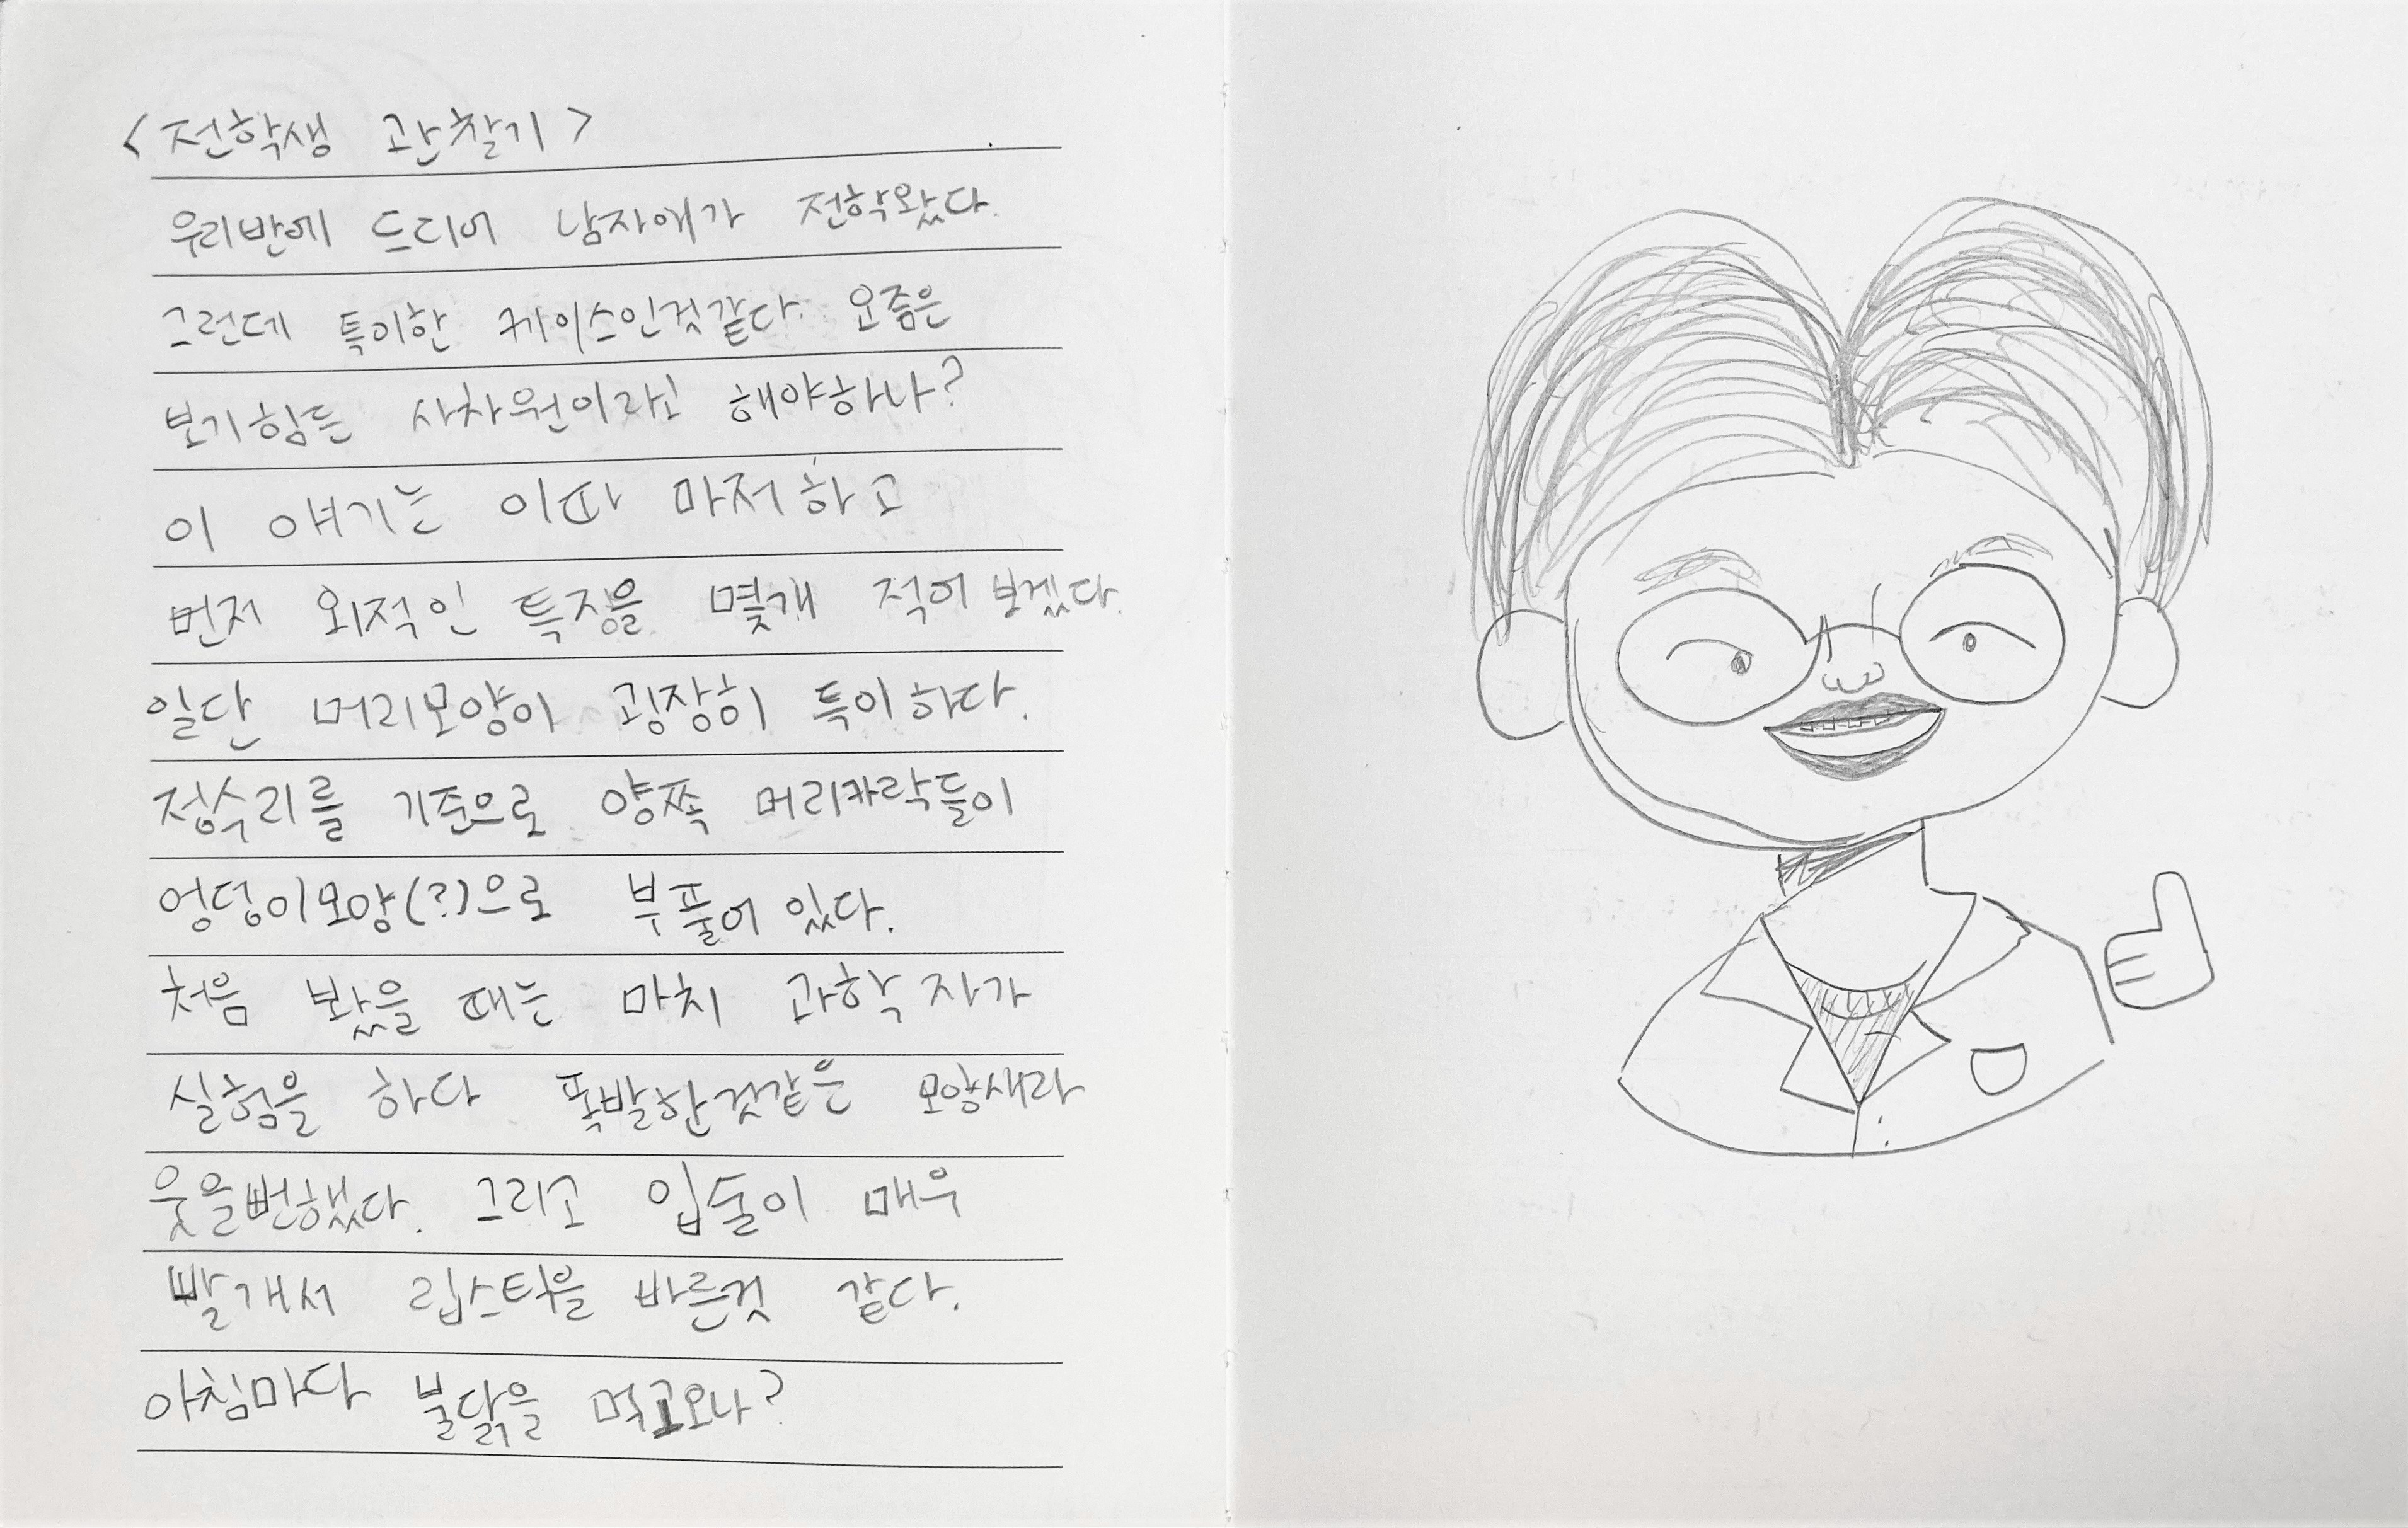 <전학생 관찰기>
우리반에 드디어 남자애가 전학왔다.
그런데 특이한 케이스인것같다. 요즘은
보기힘든 사차원이라고 해야하나?
이 얘기는 이따 마저하고
먼저 외적인 특징을 몇개 적어보겠다.
일단 머리모양이 굉장히 특이하다.
정수리를 기준으로 양쪽 머리카락들이
엉덩이모양(?)으로 부풀어 있다.
처음 봤을 때는 마치 과학자가
실험을 하다 폭발한것같은 모양새라
웃을뻔했다. 그리고 입술이 매우
빨개서 립스틱을 바른것 같다.
아침마다 불닭을 먹고오나?